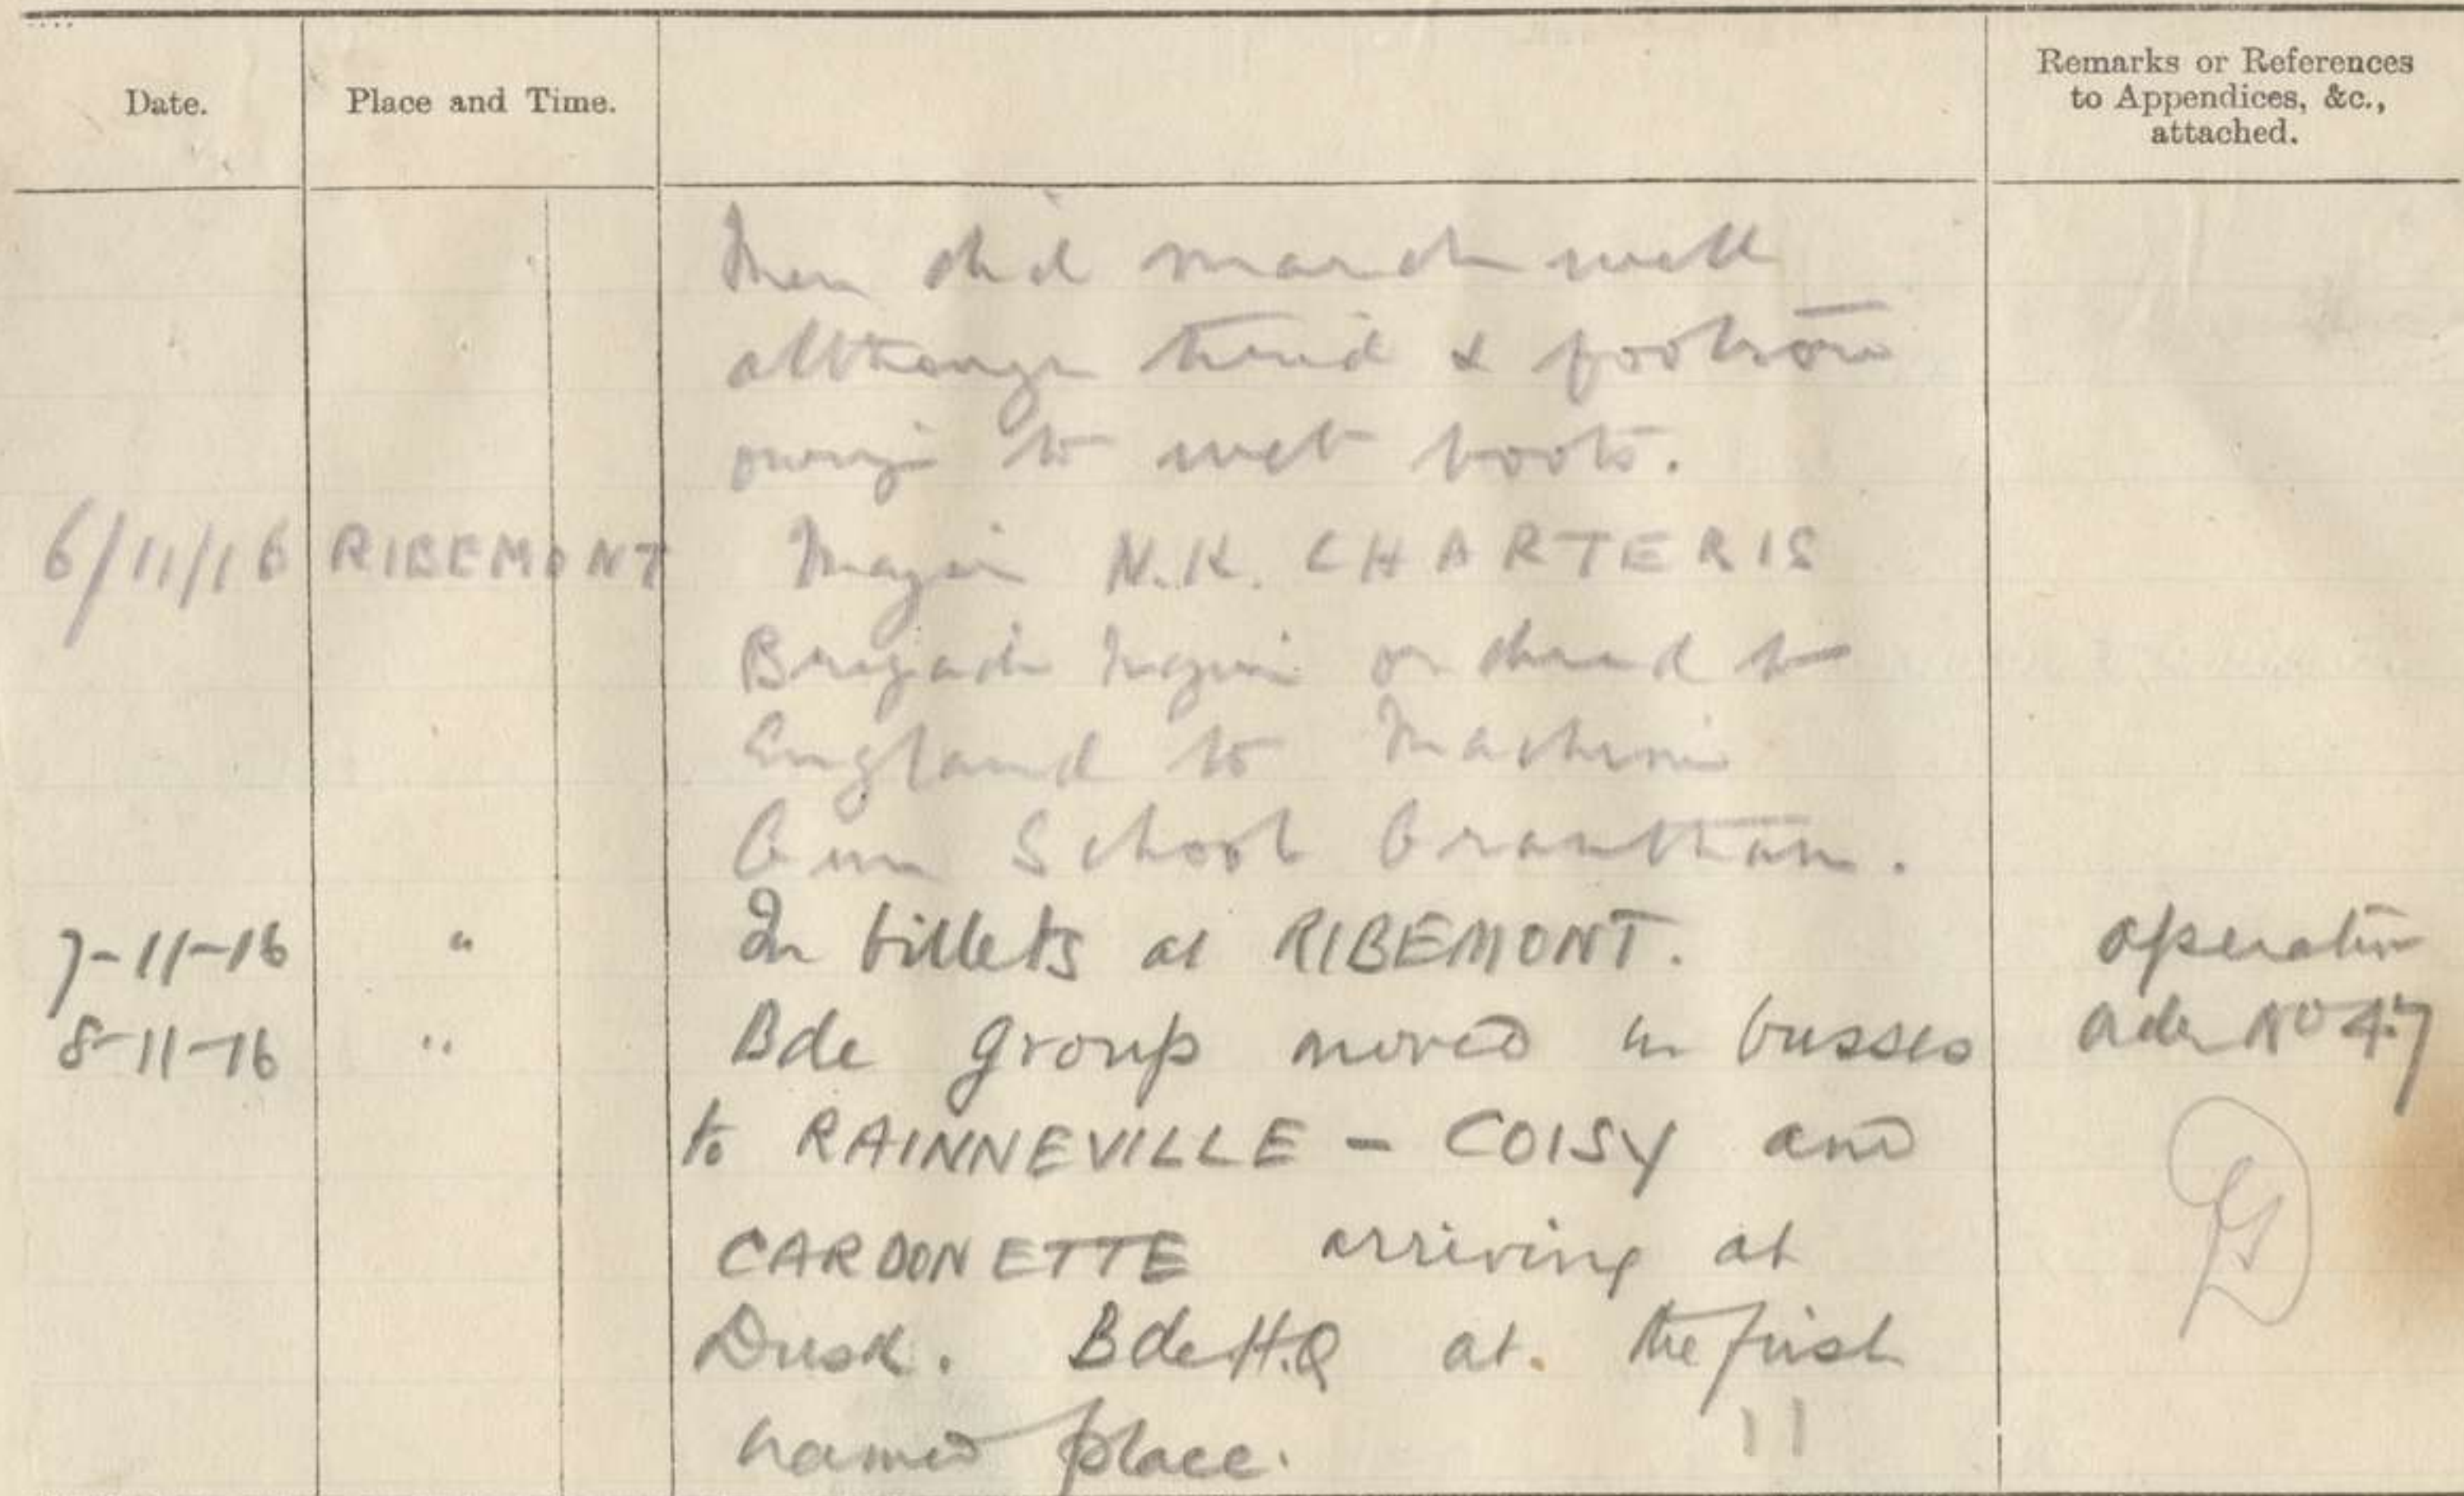 Date.
Place and Time.
Remarks or References
to Appendices, &c.,
attached.
Men did march well
although tired & footsore
owing to wet boots.
6/11/16 RIBEMONT Major N.K. CHARTERIS
Brigade Major ordered to
England to Machine
Gun School Grantham.
7-11-16 " In billets at RIBEMONT. Operation
8-11-16 " Bde group moved in busses Order No 47
to RAINNEVILLE - COISY and
CARDONETTE arriving at
Dusk. Bde H.Q at. the first
named place.
11